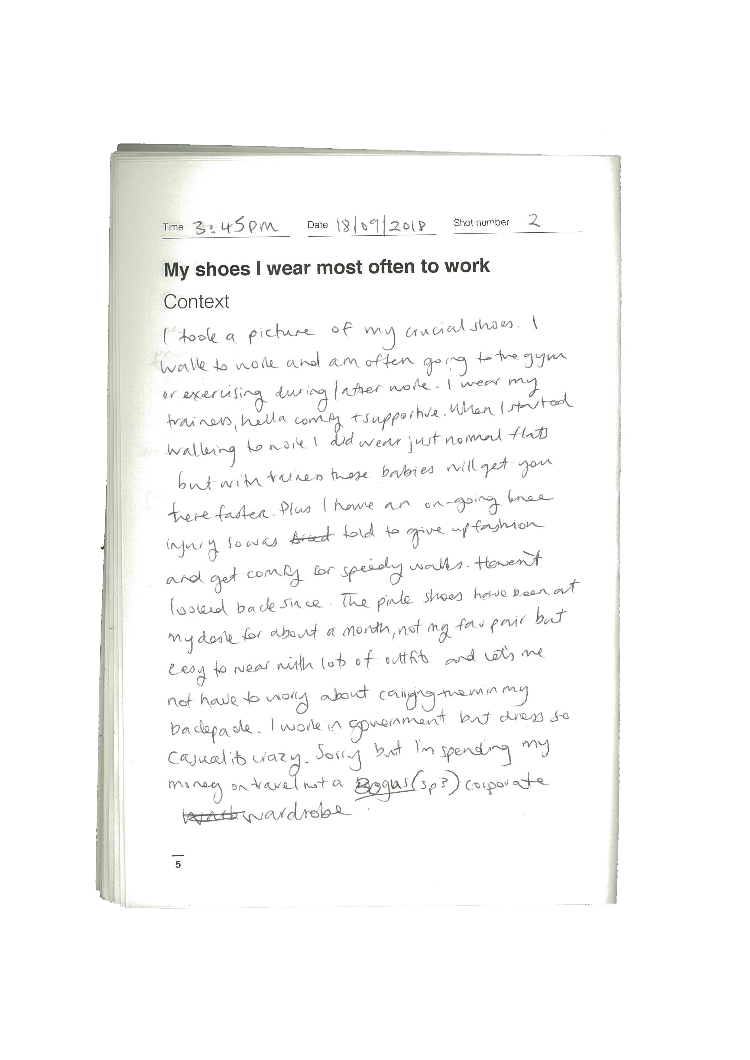 Time 3:45PM Date 18/09/2018 Shot number 2
My shoes I wear most often to work
Context
I took a picture of my crucial shoes. I
walk to work and am often going to the gym
or exercising during/after work. I wear my
trainers, hella comfy + supportive. When I started
walking to work I did wear just normal flats
but with trainers these babies will get you
there faster. Plus I have an on-going knee
injury so was told to give up fashion
and get comfy for speedy walks. Haven't
looked back since. The pink shoes have been at
my desk for about a month, not my fav pair but
easy to wear with lots of outfits and let's me
not have to worry about carrying them in my
backpack. I work in government but dress so
casual it's crazy. Sorry but I'm spending my
money on travel not a Bogus (sp?) corporate
wardrobe.
5